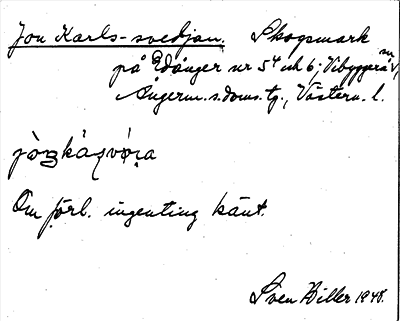 Jon Karls-svedjan. Skogsmark
på Edånger nr 5 och 6; Vibyggerå sn,
Ångerm. s. doms. tg., Västern. l.
Om förl. ingenting känt.
Sven Hiller 1948.